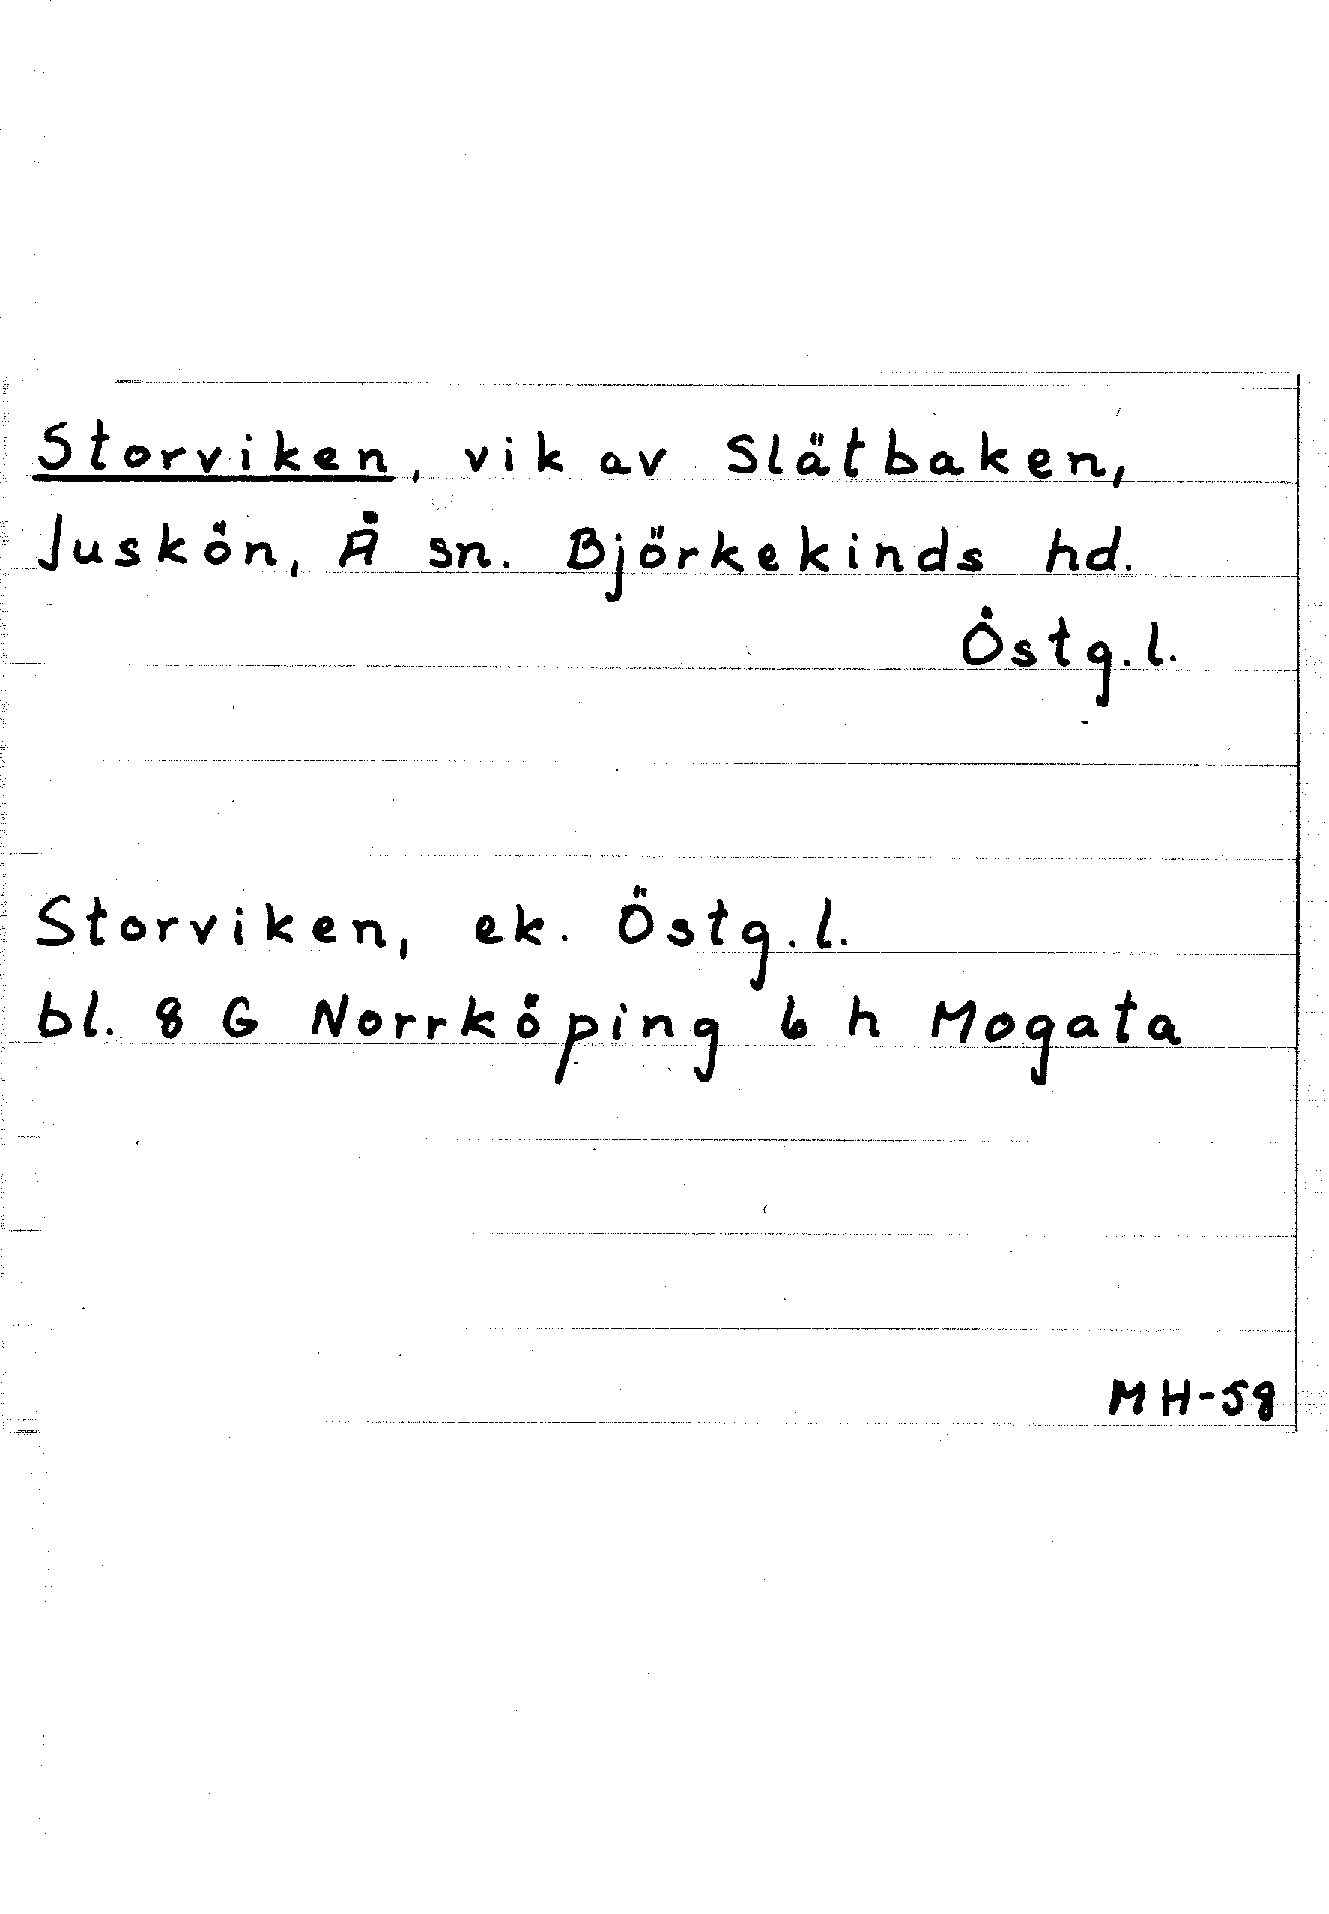 Storviken, vik av Slätbaken,
Juskön, Å sn. Björkekinds hd.
Östg.l.
Storviken, ek. Östg.l.
bl. 8 G Norrköping 6 h Mogata
MH-58